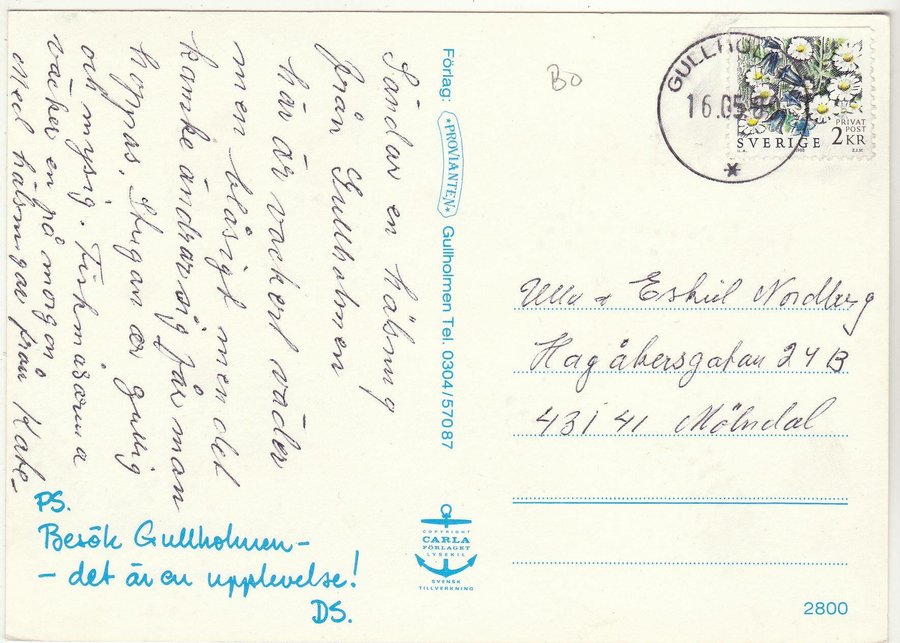 Sändar en hälsning
från Gullholmen
här är vackert väder
men blåsigt men det
kanske ändrar sig får man
hoppas. Stugan är gullig
och mysig. Fiskmåsarna
väcker en på morgon
Med hälsningar från Kate-
PS.
Besök Gullholmen-
- det är en upplevelse!
DS.
Förlag: *PROVIANTEN* Gullholmen Tel. 0304/570 87
COPYRIGHT
CARLA
FÖRLAGET
LYSEKIL
SVENSK
TILLVERKNING
BO
GULLHO
16.05.
PRIVAT
POST
SVERIGE 2KR
Ulla & Eskil Nordberg
Hagåkersgatan 24B
431 41 Mölndal
2800